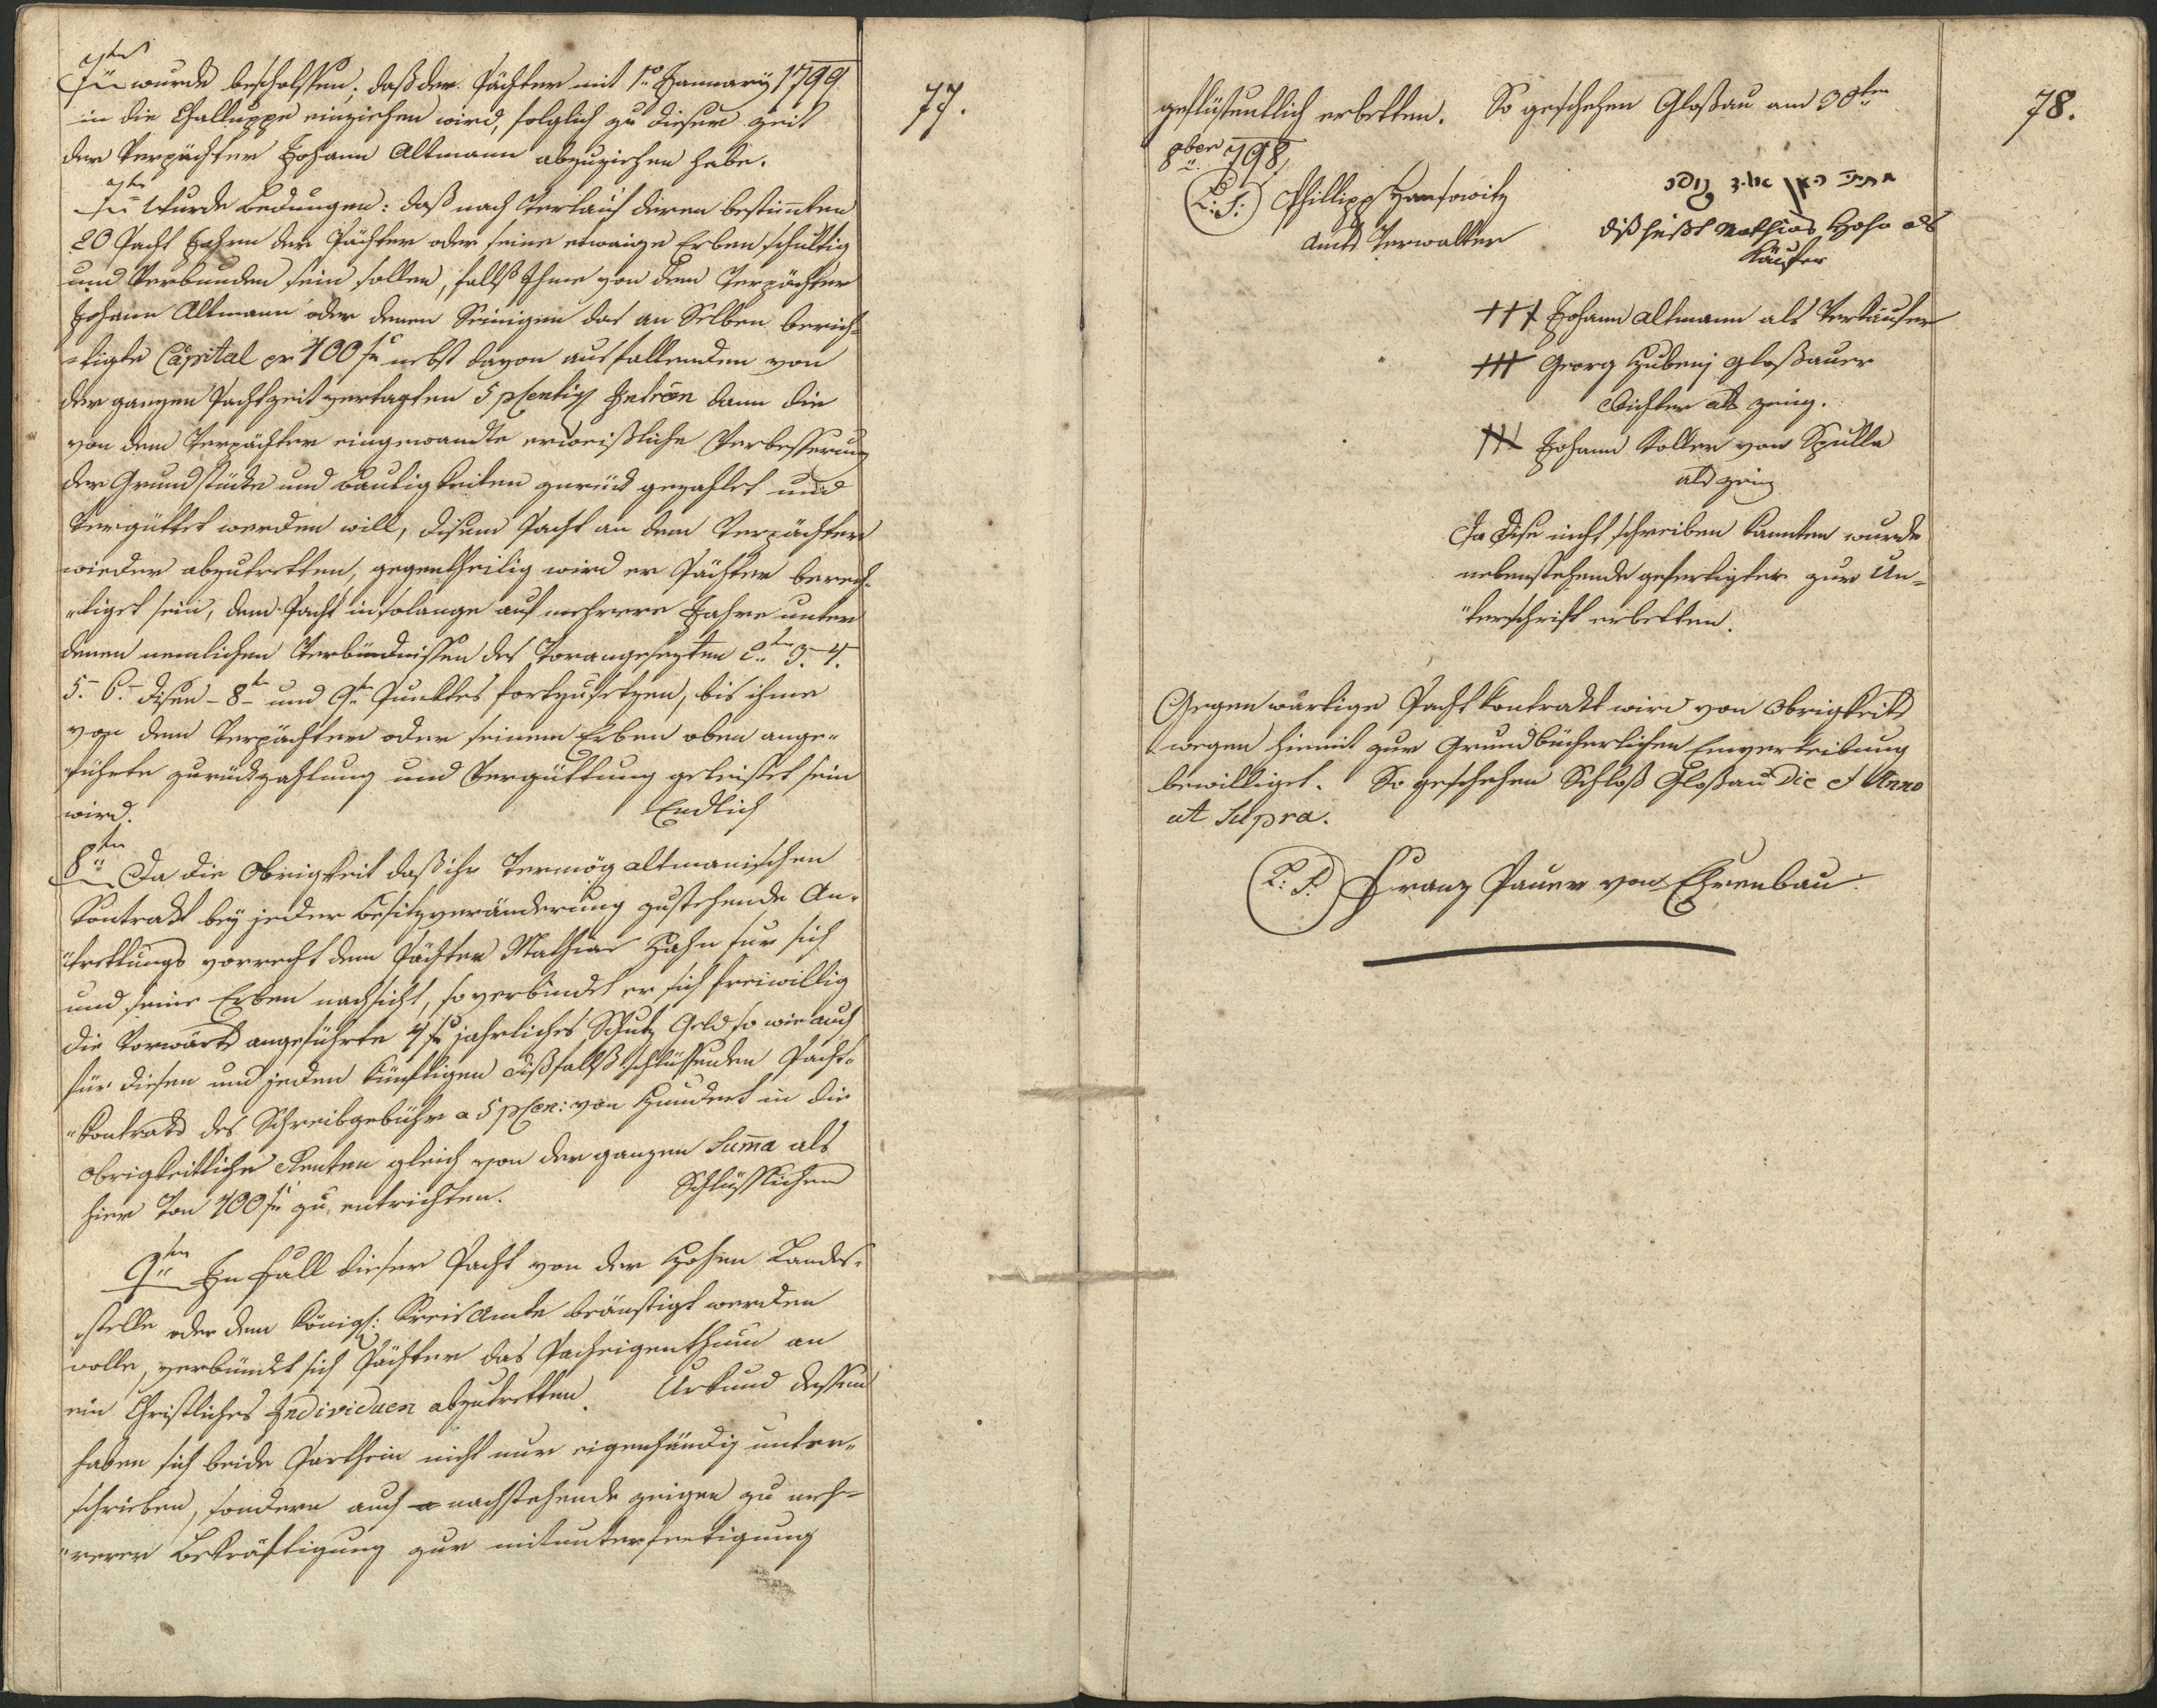 7ten
wurde beschlossen, daß der Pächter mit 1º Jannuarij 1799
in die Challuppe einziehen wird, folglich zu dieser Zeit
der Verpächter Johann Altmann abzuziehen habe.
7ten Wurde bedungen: daß nach Verlauf deren bestimten
20 Pacht Jahren der Pächter oder seine etwaige Erben schuldig
und Verbunden sein sollen, falls Ihme von dem Verpächter
Johann Altmann oder denen Seinigen das an Selben berich-
-tigte Capital pr 400 fr nebst davon ausfallenden von
der ganzen Pachtzeit vertagten 5 pcentig Intreßen dann die
von dem Verpächter eingewandte erweißliche Verbesserung
der Grundstücke und Baubigkeiten zurück gezahlet und
Vergüttet werden will, disem Pacht an dem Verpächter
wieder abzutretten, gegentheilig wird er Pächter berech-
-tiget sein, dem Pacht in solange auf mehrere Jahre unter
denen nemlichen Verbündnissen des Vorangesezten 2ten 3. 4.
5. 6. disen - 8ten und 9ten Punktes fortzusetzen, bis ihme
von dem Verpächter oder seinem Erben oben ange-
führte zurückzahlung und Vergüttung geleistet sein
wird. Endlich
8ten Da die Obrigkeit daß ihr Vermög altmanischen
Kontrakt bey jeder Besitzveränderung zustehende An-
trettungs vorrecht dem Pächter Mathias Hahn fur sich
und seine Erben nachsicht, so verbindet er sich freiwillig
die Vorwärts angeführte 4 fr jahrliches Schutz Geld so wie auch
für diesen und jeden künftigen dißfalls schlüssenden Pacht-
Kontrakt des Schreibgebühr a 5 pcen: von Hundert in die
obrigkeitliche Renten gleich von der ganzen Suma als
hier Von 400 fr zu entrichten. Schlüsslichen
9ten Im Fall dieser Pacht von der Hohen Landes-
stelle oder dem Königl: Kreisamte beänstigt werden
wolle, verbündet sich Pächter das Pachteigenthum an
ein Christliches Individuen abzutretten. Urkund dessen
haben sich beide Partheien nicht nur eigenhändig unter-
schrieben, sondern auch nachstehende zeigen zu meh-
rerer Bekräftigung zur mitunterfertigung
77.
geflüssentlich erbetten. So geschehen Gloßau am 30ten
8ber 798
L: S: Phillipp Hansowitz
Amts Verwalter
diß heißt Mathias Hahn als
Käufer
+++ Johann Altmann als Verkäufer
+++ Georg Hubenj Gloßauer
Richter als zeug.
+++ Johann Koller von Spulla
als zeug
Da diese nicht schreiben kannten wurde
nebenstehende gefertigter zur Un-
terschrift erbetten.
Gegenwärtige Pacht Kontrakt wird von Obrigkeits
wegen hiemit zur Grundbücherlichen Einverleibung
bewilliget. So geschehen Schloß Gloßau Die et Anno
ut Supra.
L: S. Franz Pauer von Ehrenbau
78.